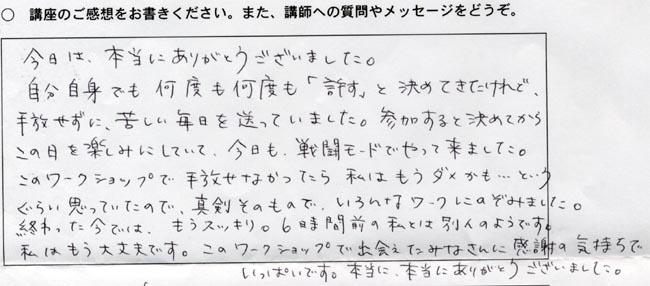 ○ 講座のご感想をお書きください。また、講師への質問やメッセージをどうぞ。
今日は、本当にありがとうございました。
自分自身でも何度も何度も「許す」と決めてきたけれど、
手放せずに、苦しい毎日を送っていました。参加すると決めてから
この日を楽しみにしていて、今日も、戦闘モードでやって来ました。
このワークショップで手放せなかったら私はもうダメかも…という
ぐらい思っていたので、真剣そのもので、いろんなワークにのぞみました。
終わった今では、もうスッキリ。6時間前の私とは別人のようです。
私はもう大丈夫です。このワークショップで出会えたみなさんに感謝の気持ちで
いっぱいです。本当に、本当にありがとうございました。